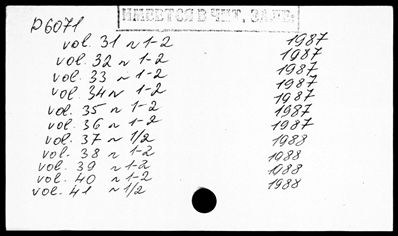 D6071 ИМЕЕТСЯ В ЧИТ. ЗАЛЕ
vol. 31 N 1-2 1987
vol. 32 N 1-2 1987
vol. 33 N 1-2 1987
vol. 34 N 1-2 1987
vol. 35 N 1-2 1987
vol. 36 N 1-2 1987
vol. 37 N 1/2 1988
vol. 38 N 1-2 1988
vol. 39 N 1-2 1988
vol. 40 N 1-2 1988
vol. 41 N 1/2